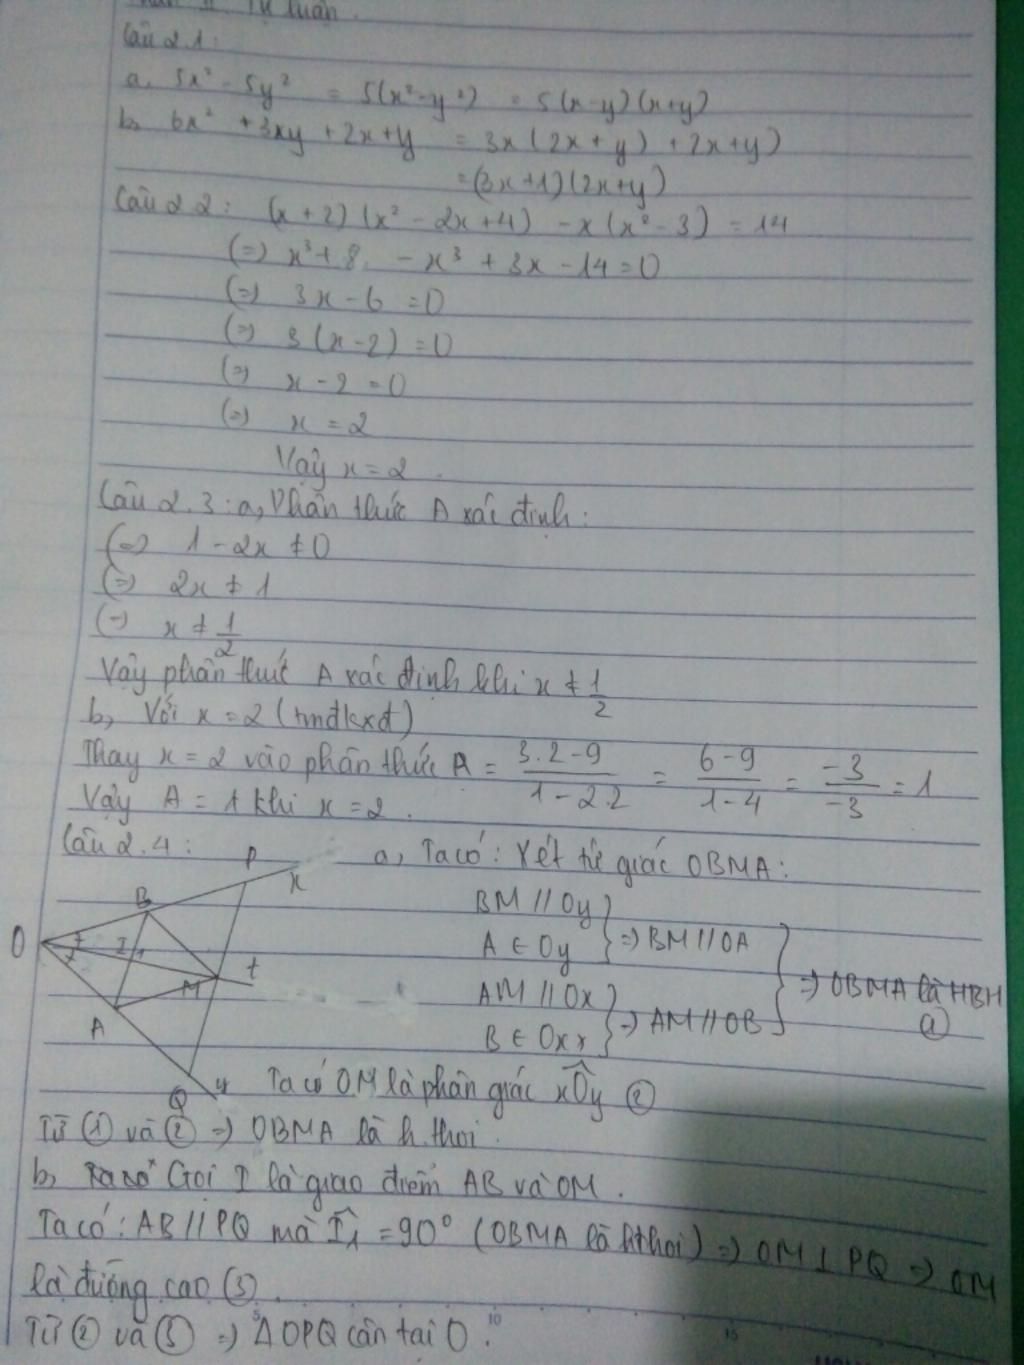 Tự luận.
Câu 2.1:
a, 5x² - 5y² = 5(x² - y²) = 5(x-y)(x+y)
b, 6x² + 3xy + 2x + y = 3x(2x + y) + 2x + y)
= (3x + 1)(2x+y)
Câu 2.2: (x + 2)(x² - 2x + 4) - x(x² - 3) = 14
(=) x³ + 8 - x³ + 3x - 14 = 0
(=) 3x - 6 = 0
(=) 3(x - 2) = 0
(=) x - 2 = 0
(=) x = 2
Vậy x = 2.
Câu 2.3: a, Phân thức A xác định:
(=) 1 - 2x ≠ 0
(=) 2x ≠ 1
(=) x ≠ 1/2
Vậy phân thức A xác định khi x ≠ 1/2
b, Với x = 2 (tmđkxđ)
Thay x = 2 vào phân thức A = (3.2 - 9)/(1 - 2.2) = (6 - 9)/(1 - 4) = -3/-3 = 1
Vậy A = 1 khi x = 2.
Câu 2.4: a, Ta có: Xét tứ giác OBMA:
BM // Oy
A ∈ Oy } => BM // OA
AM // Ox
B ∈ Ox } => AM // OB
} => OBMA là HBH ①
O B P x I 1 M t A Q y
Ta có OM là phân giác xÔy ②
Từ ① và ② => OBMA là h thoi.
b, Gọi I là giao điểm AB và OM.
Ta có: AB // PQ mà Î₁ = 90° (OBMA là hthoi) => OM ⊥ PQ => OM
là đường cao ③.
Từ ② và ③ => ΔOPQ cân tại O.
5 10 15